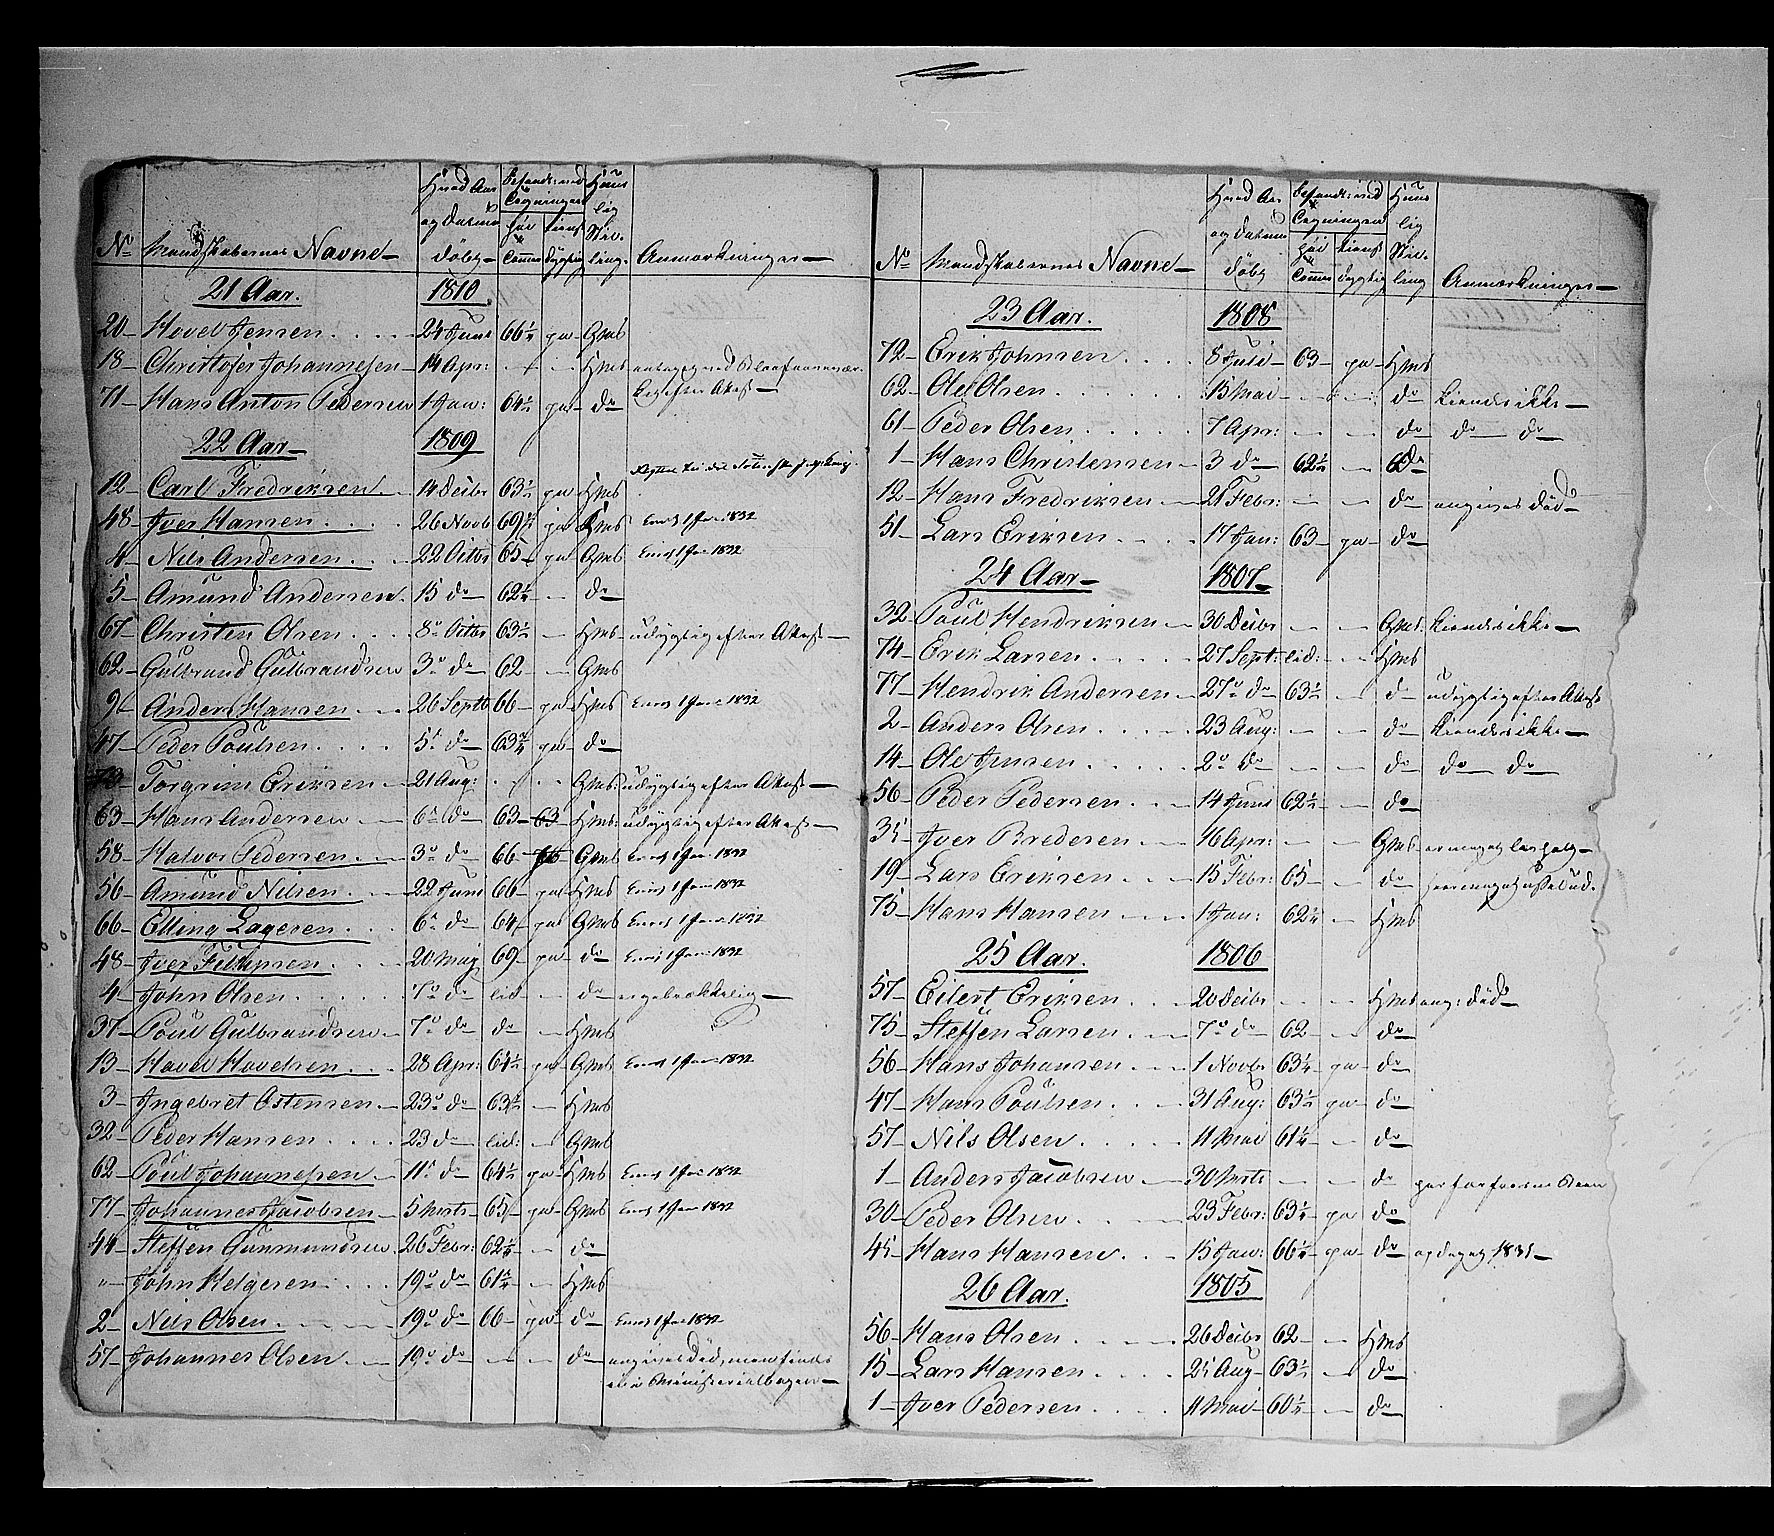 No Mandskabernes Navne Hvad Aar og Datum døbt Befunden ved Tegningen høi Tomme tienst dygtig Huus lig Stilling Anmærkninger
21 Aar. 1810
20 Hovel Jensen 24 Juni 66 1/4 ja Gmb
18 Christofer Johannesen 14 Apr: Hmb
71 Hans Anton Pedersen 1 Jan: 64 1/2 ja do
22 Aar 1809
12 Carl Fredriksen 14 Decbr 63 1/2 ja Hmb
48 Iver Hansen 26 Novb 69 ja Gmb 1 Jan: 1832
4 Nils Andersen 22 Octbr 65 ja Gmb 1 Jan: 1832
5 Amund Andersen 15 do 62 1/4 do
67 Christen Olsen 8 Octbr 63 1/2 Hmb udygtig efter Attest
62 Gulbrand Gulbrandsen 3 do 62 Gmb
9 Anders Hansen 26 Septb 66 ja Hmb 1 Jan: 1832
47 Peder Poulsen 5 do 63 3/4 ja do
Torgrim Eriksen 21 Aug: Gmb: udygtig efter Attest
63 Hans Andersen 6 do 63 63 Hmb: udygtig efter Attest
58 Halvor Pedersen 3 do 66 Gmb 1 Jan: 1832
56 Amund Nilsen 22 Juni 66 ja Hmb 1 Jan: 1832
66 Elling Lagesen 6 do 64 ja Gmb 1 Jan: 1832
48 Iver Fillipsen 20 Maj 69 ja do 1 Jan: 1832
4 John Olsen 7 do lid do
37 Poul Gulbrandsen 7 do do Hmb
13 Hovel Hovelsen 28 Apr: 64 1/2 ja Gmb 1 Jan: 1832
3 Ingebret Ostensen 23 do 63 Hmb
32 Peder Hansen 23 do lid: Gmb
62 Poul Johannesen 11 do 64 1/2 ja Hmb 1 Jan: 1832
77 Johannes Jacobsen 5 Marts 65 ja Gmb 1 Jan: 1832
44 Steffen Gunmundsen 26 Febr: 62 do
" John Helgesen 19 do 61 Hmb
2 Nils Olsen 19 do 66 ja do 1 Jan: 1832
57 Johannes Olsen 19 do do angives død, men findes
ei i Ministerialbogen
No Mandskabernes Navne Hvad Aar og Datum døbt Befunden ved Tegningen høi Tomme tienst dygtig Huus lig Stilling Anmærkninger
23 Aar. 1808
72 Erik Johnsen 8 Juli 63 ja Hmb
62 Ole Olsen 15 Mai do kiendes ikke
61 Peder Olsen 7 Apr: do do do
1 Hans Christensen 3 do 62 1/2 do
12 Hans Fredriksen 21 Febr: do angives død
51 Lars Eriksen 17 Jan: 63 ja do
24 Aar 1807
32 Poul Hendriksen 30 Decbr Gmb: kiendes ikke
74 Erik Larsen 27 Sept: lid: Hmb
77 Hendrik Andersen 27 do 63 1/2 do udygtig efter Attest
2 Anders Olsen 23 Aug: do kiendes ikke
14 Ole Jensen 2 do do do do
56 Peder Pedersen 14 Juni 62 1/2 do
35 Iver Bredesen 16 Apr: Gmb
19 Lars Eriksen 15 Febr: 65 do
75 Hans Hansen 1 Jan: 62 1/4 Hmb
25 Aar. 1806
57 Eilert Eriksen 20 Decbr Hmb ang: død
75 Steffen Larsen 7 do 62 do
56 Hans Johansen 1 Novbr 63 1/4 ja do
47 Hans Poulsen 31 Aug: 63 1/2 ja do
57 Nils Olsen 11 Mai 61 1/4 do
1 Anders Jacobsen 30 Marts do
30 Peder Olsen 23 Febr: 63 1/4 ja do
45 Hans Hansen 15 Jan: 66 1/4 ja do 1831
26 Aar. 1805
56 Hans Olsen 26 Decbr 62 Hmb
15 Lars Hansen 25 Aug 63 1/2 do
1 Iver Pedersen 11 Mai 60 1/4 do